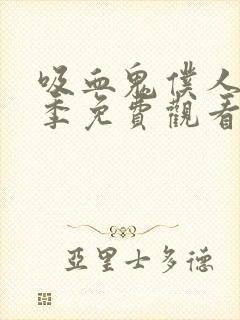 吸血鬼僕人
季免費觀看
亞里士多德